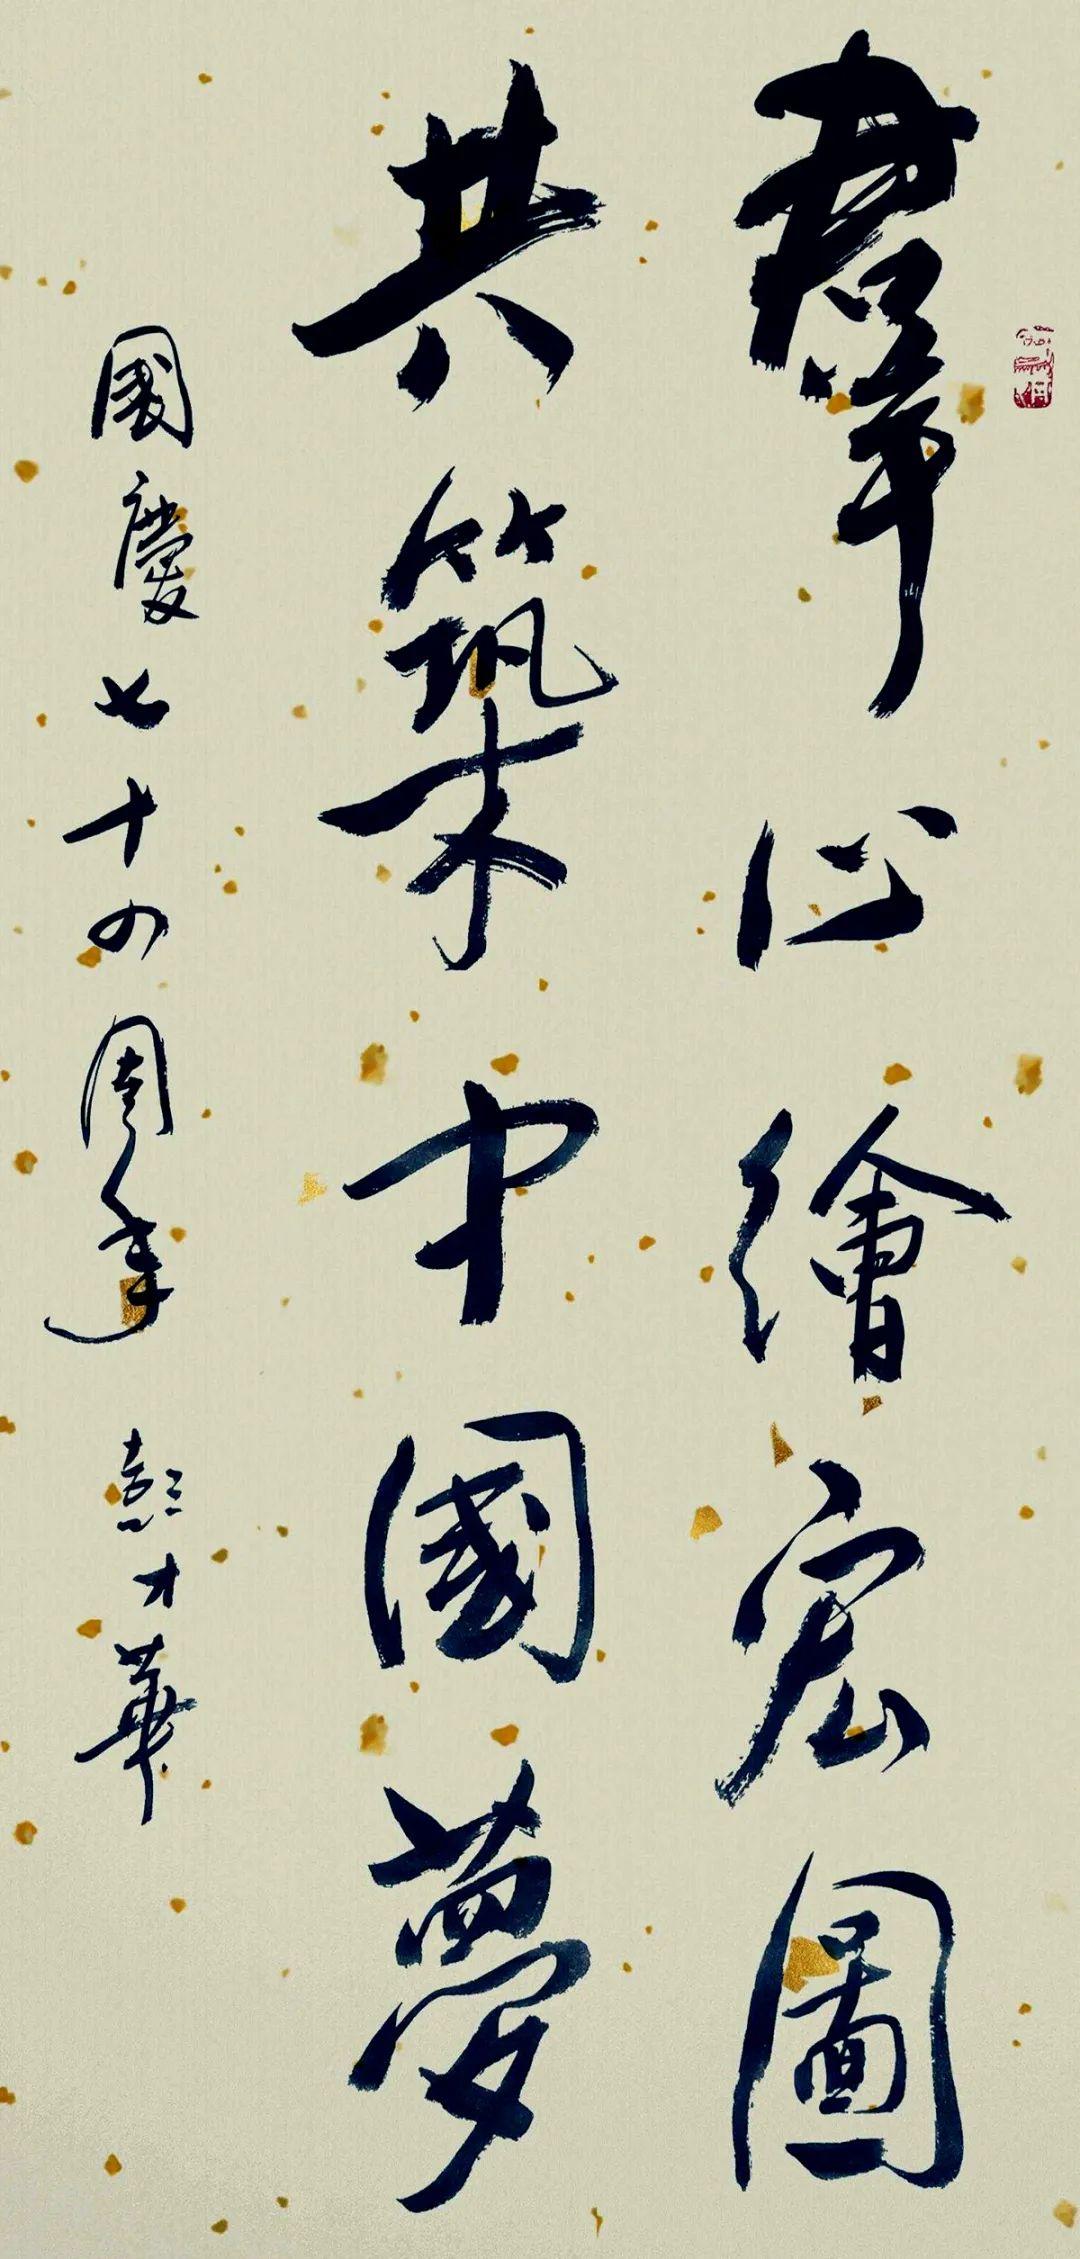 羣心繪宏圖
共築中國夢
國慶七十四周年 彭才華